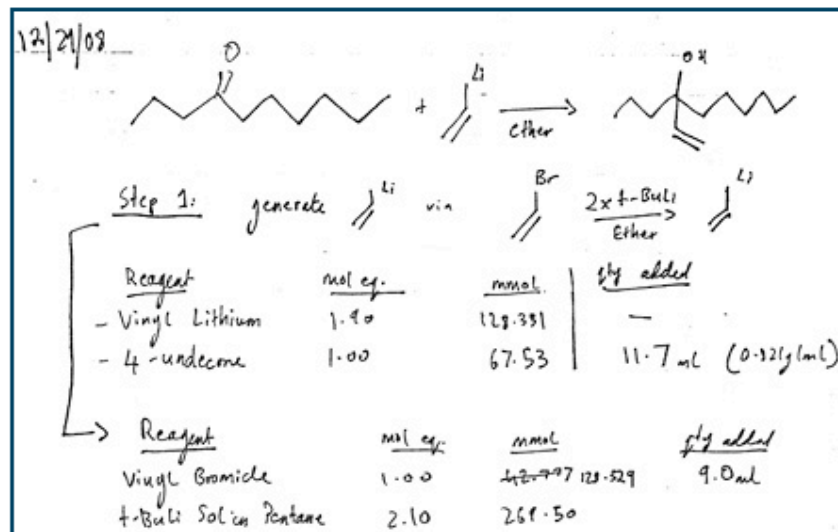 12/29/08
O
Li
OH
+
Ether
Step 1: generate Li via Br 2x t-BuLi Li
Ether
Reagent mol eq. mmol qty added
- Vinyl Lithium 1.90 128.331 —
- 4-undecone 1.00 67.53 11.7 ml (0.821g/ml)
Reagent mol eq. mmol qty added
Vinyl Bromide 1.00 128.529 9.0ml
t-Buli Sol in Pentane 2.10 269.50